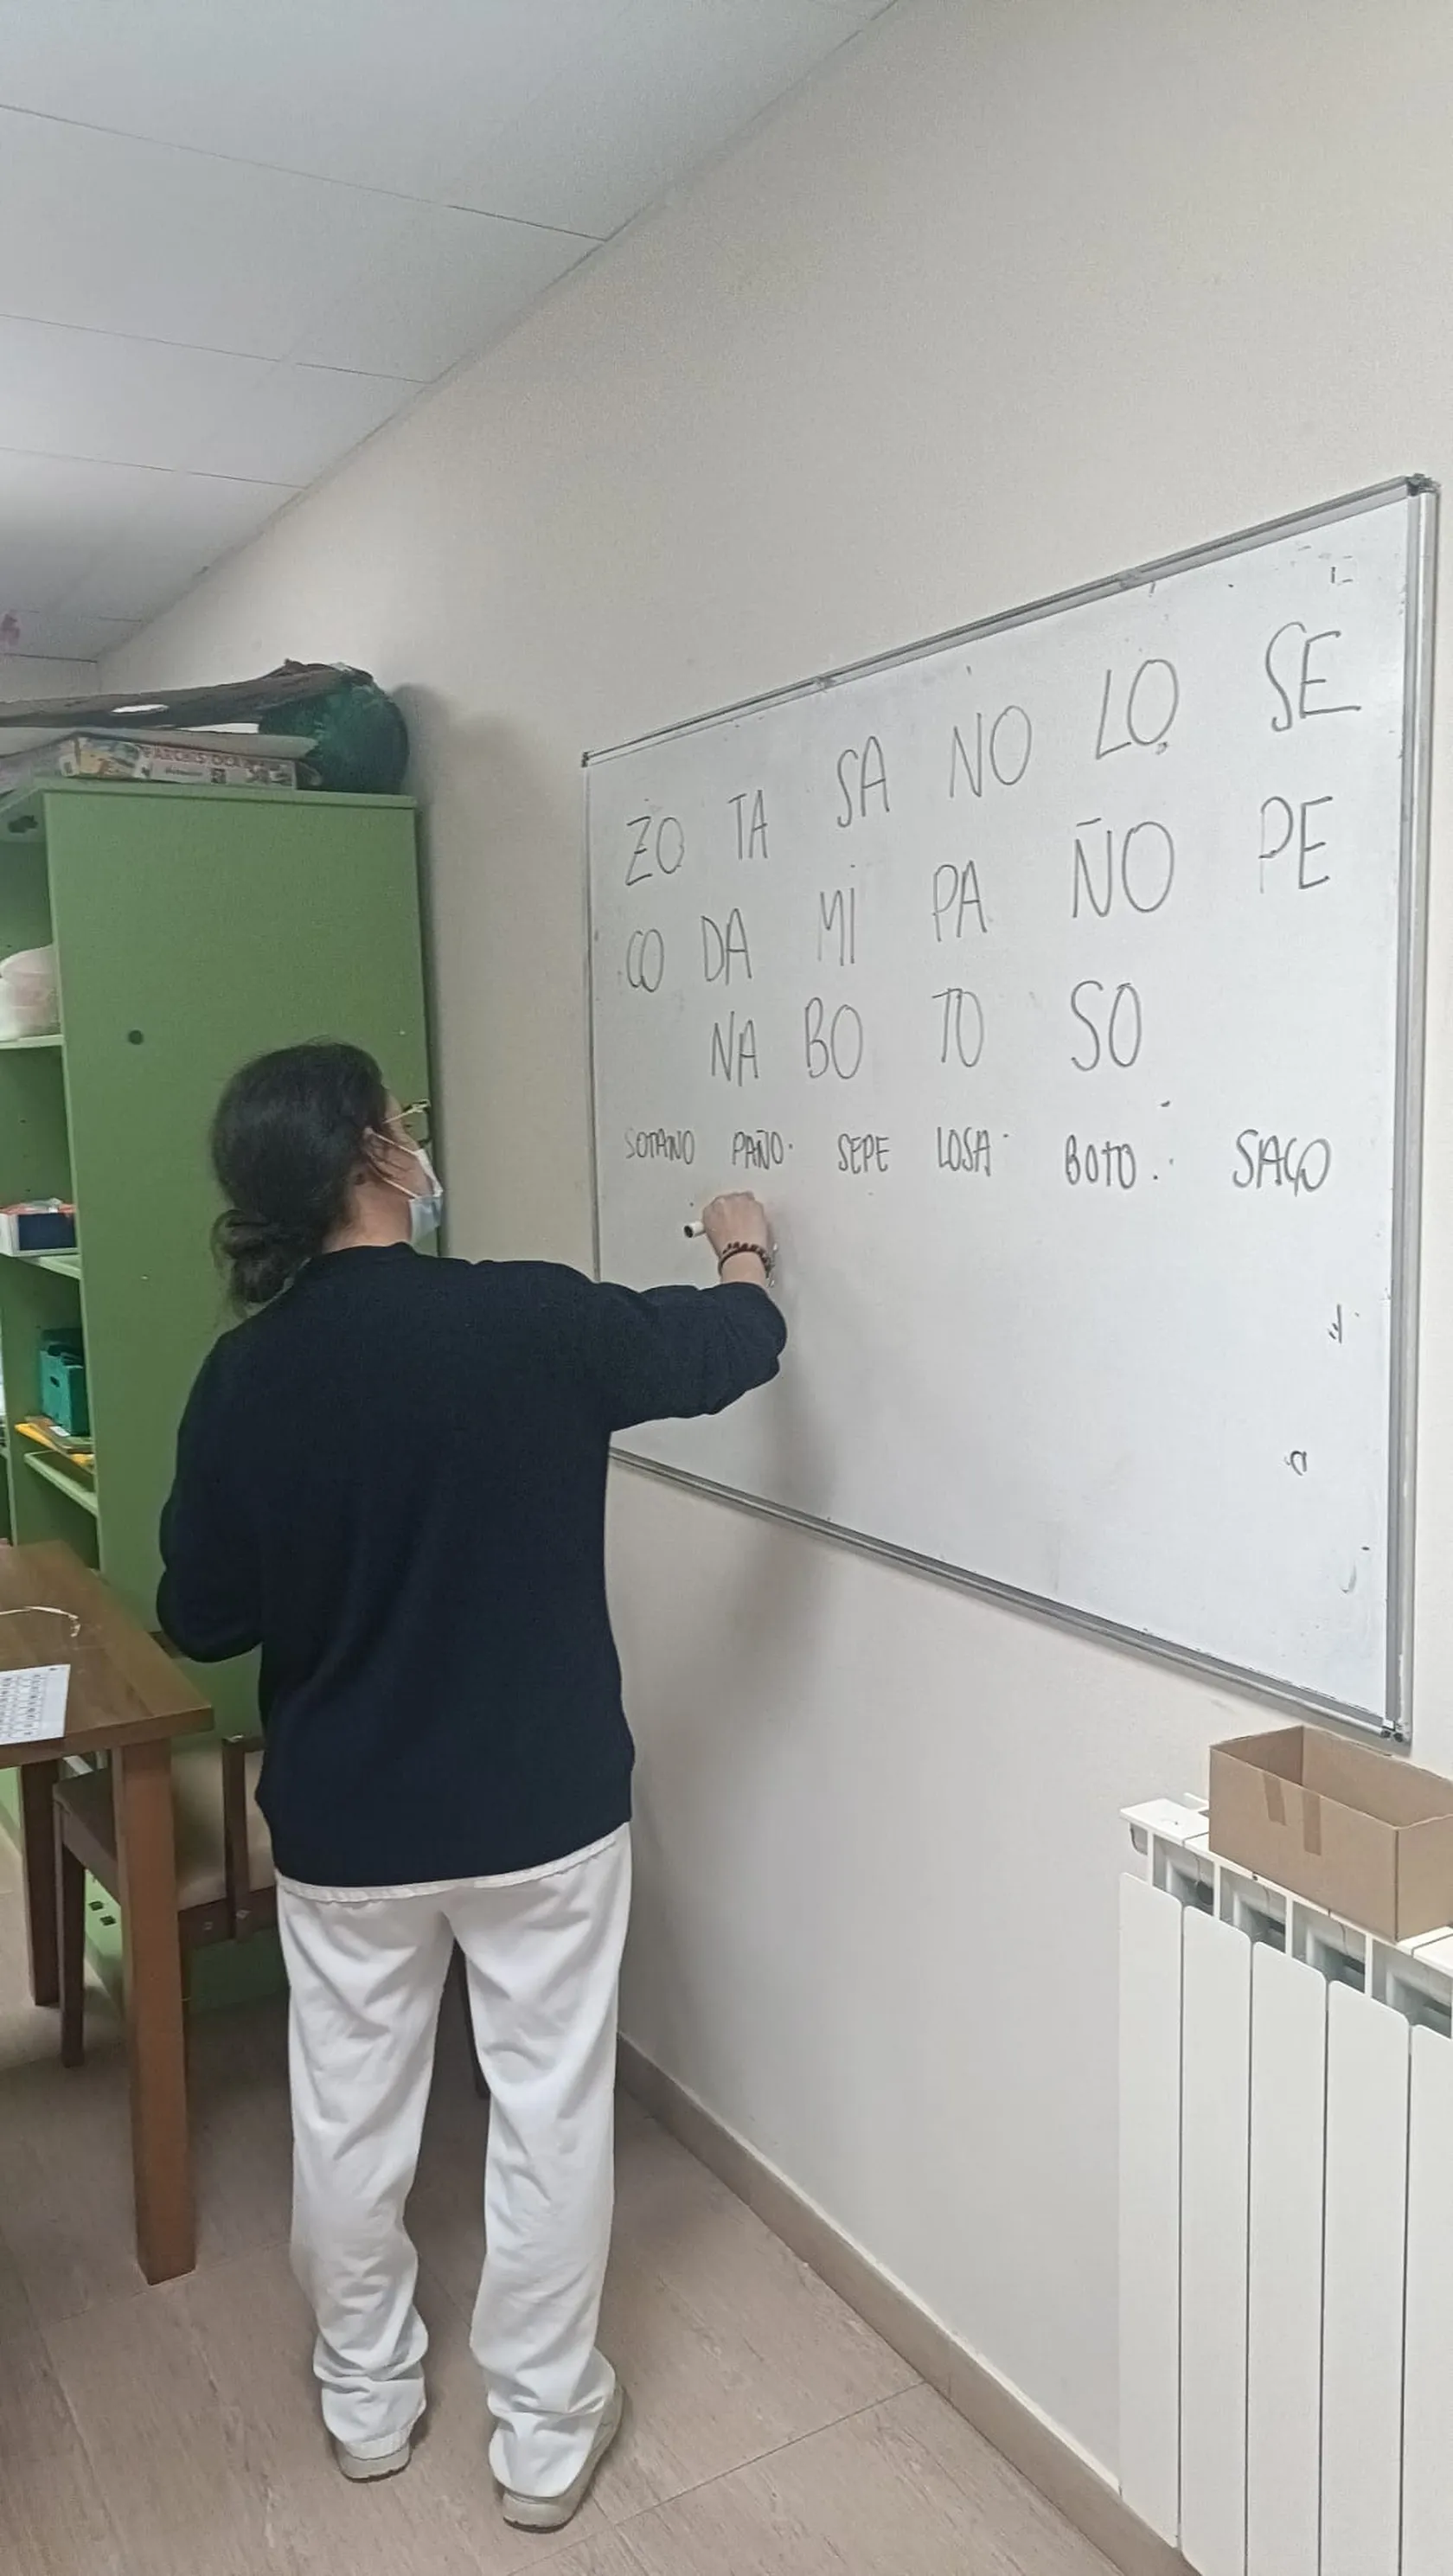 PARCHIS OCA
ZO TA SA NO LO SE
CO DA MI PA ÑO PE
NA BO TO SO
SOTANO PAÑO. SEPE LOSA. BOTO. SACO